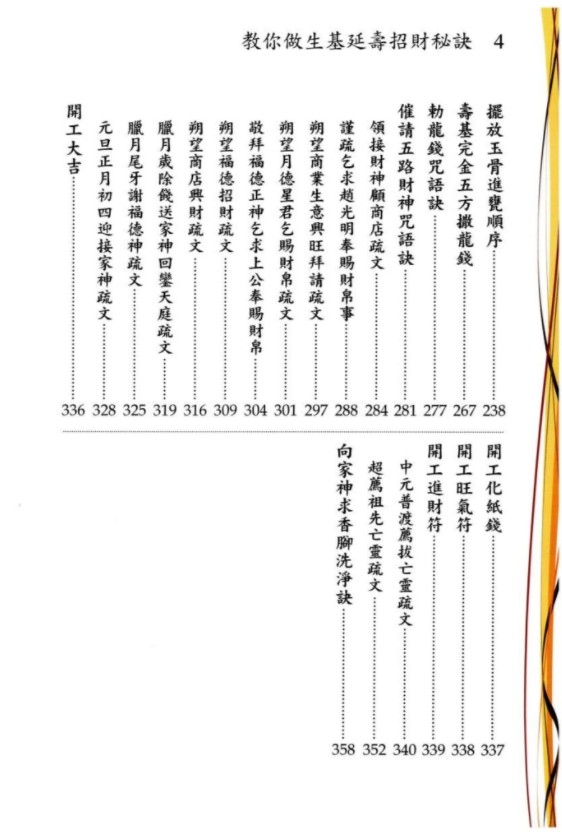 教你做生基延壽招財秘訣 4
擺放玉骨進甕順序 238
壽基完金五方撒龍錢 267
勅龍錢咒語訣 277
催請五路財神咒語訣 281
領接財神顧商店疏文 284
謹疏乞求趙光明奉賜財帛事 288
朔望商業生意興旺拜請疏文 297
朔望月德星君乞賜財帛疏文 301
敬拜福德正神乞求上公奉賜財帛 304
朔望福德招財疏文 309
朔望商店興財疏文 316
臘月歲除餞送家神回鑾天庭疏文 319
臘月尾牙謝福德神疏文 325
元旦正月初四迎接家神疏文 328
開工大吉 336
開工化紙錢 337
開工旺氣符 338
開工進財符 339
中元普渡薦拔亡靈疏文 340
超薦祖先亡靈疏文 352
向家神求香腳洗淨訣 358